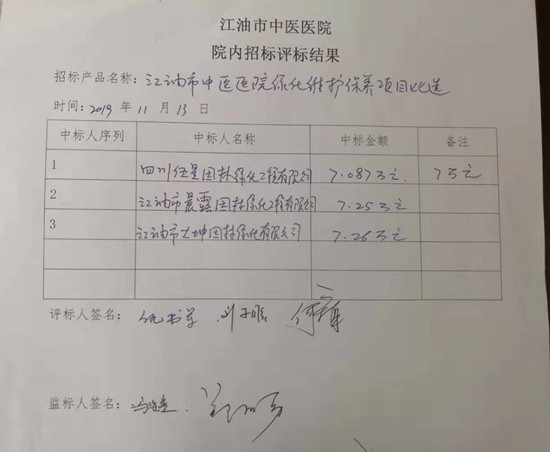 江油市中医医院
院内招标评标结果
招标产品名称：江油市中医医院绿化维护保养项目比选
时间：2019 年 11 月 13 日
中标人序列 中标人名称 中标金额 备注
1 四川恒星园林绿化工程有限公司 7.087万元. 7万元
2 江油市晨露园林绿化工程有限公司 7.25万元
3 江油市大坤园林绿化有限公司 7.26万元
评标人签名：
监标人签名：